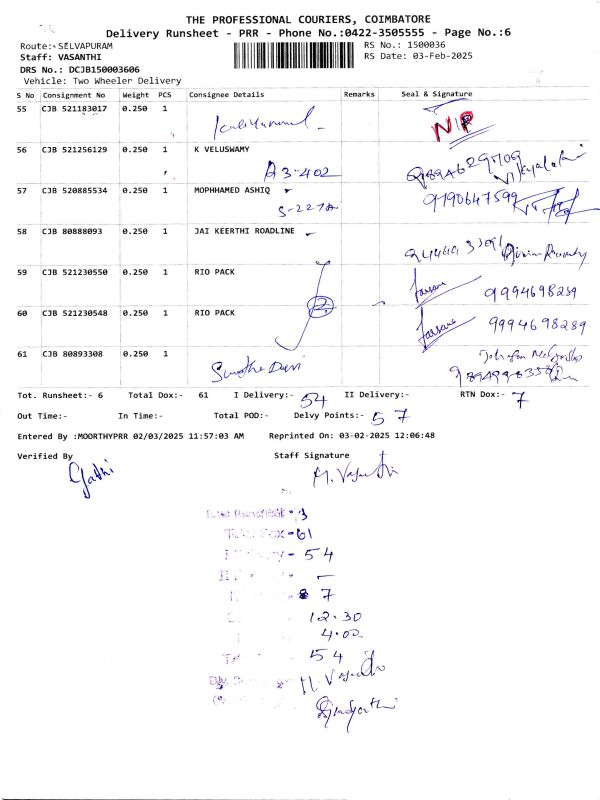 THE PROFESSIONAL COURIERS, COIMBATORE
Delivery Runsheet - PRR - Phone No.:0422-3505555 - Page No.:6
Route:- SELVAPURAM RS No.: 1500036
Staff: VASANTHI RS Date: 03-Feb-2025
DRS No.: DCJB150003606
Vehicle: Two Wheeler Delivery
S No Consignment No Weight PCS Consignee Details Remarks Seal & Signature
55 CJB 521183017 0.250 1
56 CJB 521256129 0.250 1 K VELUSWAMY
A3-402
57 CJB 520885534 0.250 1 MOPHHAMED ASHIQ 9790647599
S-227A
58 CJB 80888093 0.250 1 JAI KEERTHI ROADLINE
59 CJB 521230550 0.250 1 RIO PACK
9994698289
60 CJB 521230548 0.250 1 RIO PACK
2 9994698289
61 CJB 80893308 0.250 1
Tot. Runsheet:- 6 Total Dox:- 61 I Delivery:- 54 II Delivery:- RTN Dox:- 7
Out Time:- In Time:- Total POD:- Delvy Points:- 57
Entered By :MOORTHYPRR 02/03/2025 11:57:03 AM Reprinted On: 03-02-2025 12:06:48
Verified By Staff Signature
M. Vasanthi
- 3
- 61
- 54
- –
- 7
12.30
4.02
54
M. Vasanthi